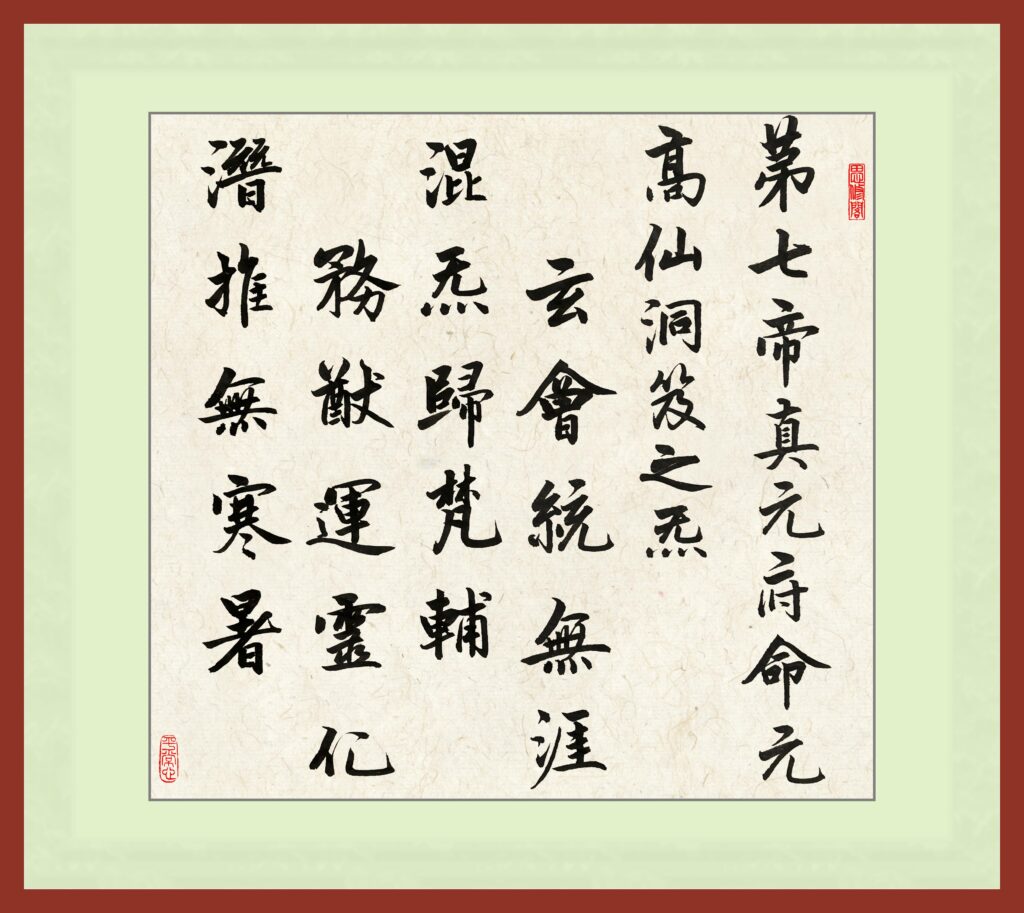 第七帝真元府命元
高仙洞笈之炁
玄會統無涯
混炁歸梵輔
務猷運靈化
潛推無寒暑
思修閣
平常心